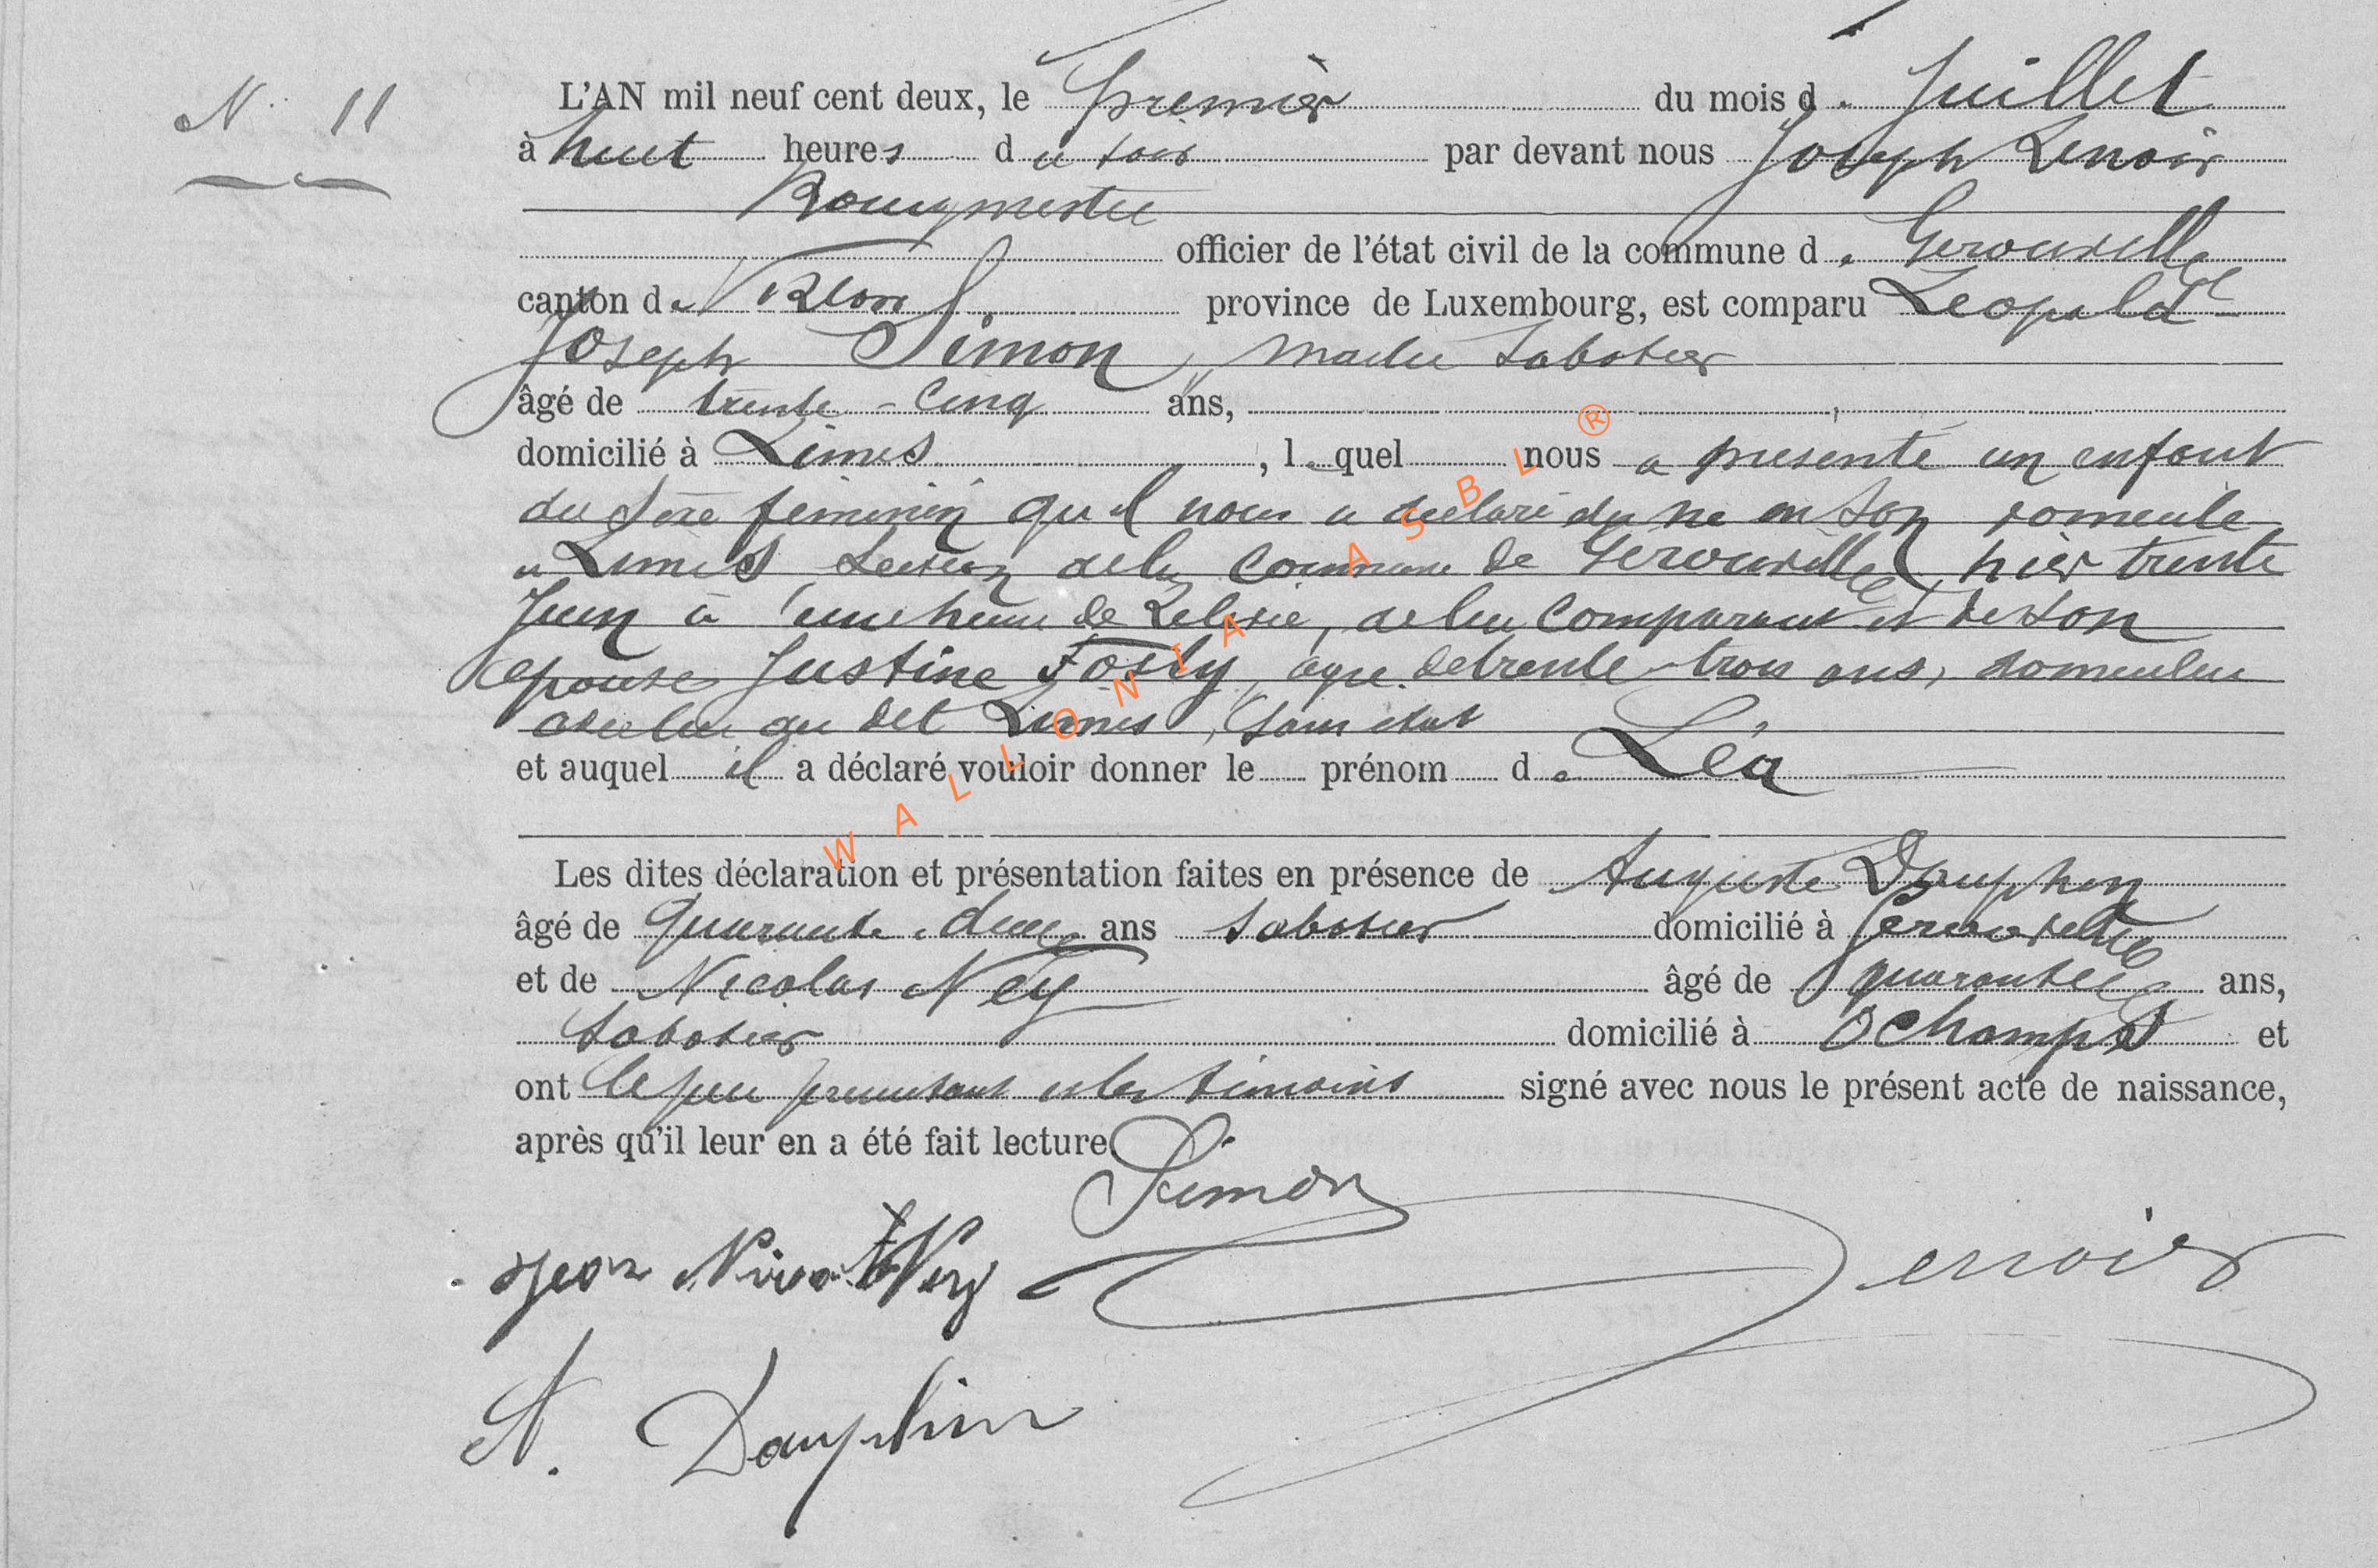 N° 11
L'AN mil neuf cent deux, le premier du mois de Juillet
à huit heures du soir par devant nous Joseph Lenoir
Bourgmestre
officier de l'état civil de la commune de Gerouville
canton de Virton province de Luxembourg, est comparu Léopold
Joseph Simon, maitre sabotier
âgé de trente-cinq ans,
domicilié à Limes, lequel nous a présenté un enfant
du sexe féminin qu'il nous a déclaré être né en son domicile
à Limes section de la commune de Gerouville, hier trente
Juin à une heure de Relevée, de lui comparant et de son
épouse Justine Fosty, agée de trente-trois ans, domiciliée
avec lui au dit Limes, sans état
et auquel il a déclaré vouloir donner le prénom de Léa
Les dites déclaration et présentation faites en présence de Auguste Dauphin
âgé de quarante-deux ans sabotier domicilié à Gerouville
et de Nicolas Ney âgé de quarante ans,
sabotier domicilié à Ochamps et
ont le père présentant et les témoins signé avec nous le présent acte de naissance,
après qu'il leur en a été fait lecture
Simon
Jean Ney Lenoir
A. Dauphin
WALLONIA ASBL ®